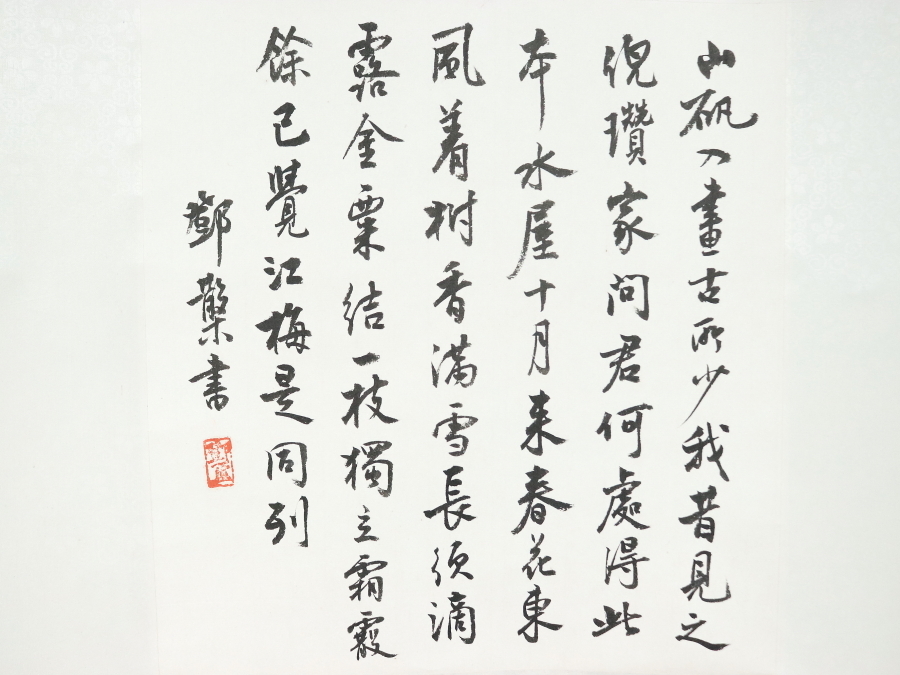 山礬入畫古所少我昔見之
倪瓚家問君何處得此
本水屋十月来春花東
風着樹香滿雪長須滴
露金粟結一枝獨立霜霰
餘已覺江梅是同列
鄧散木書